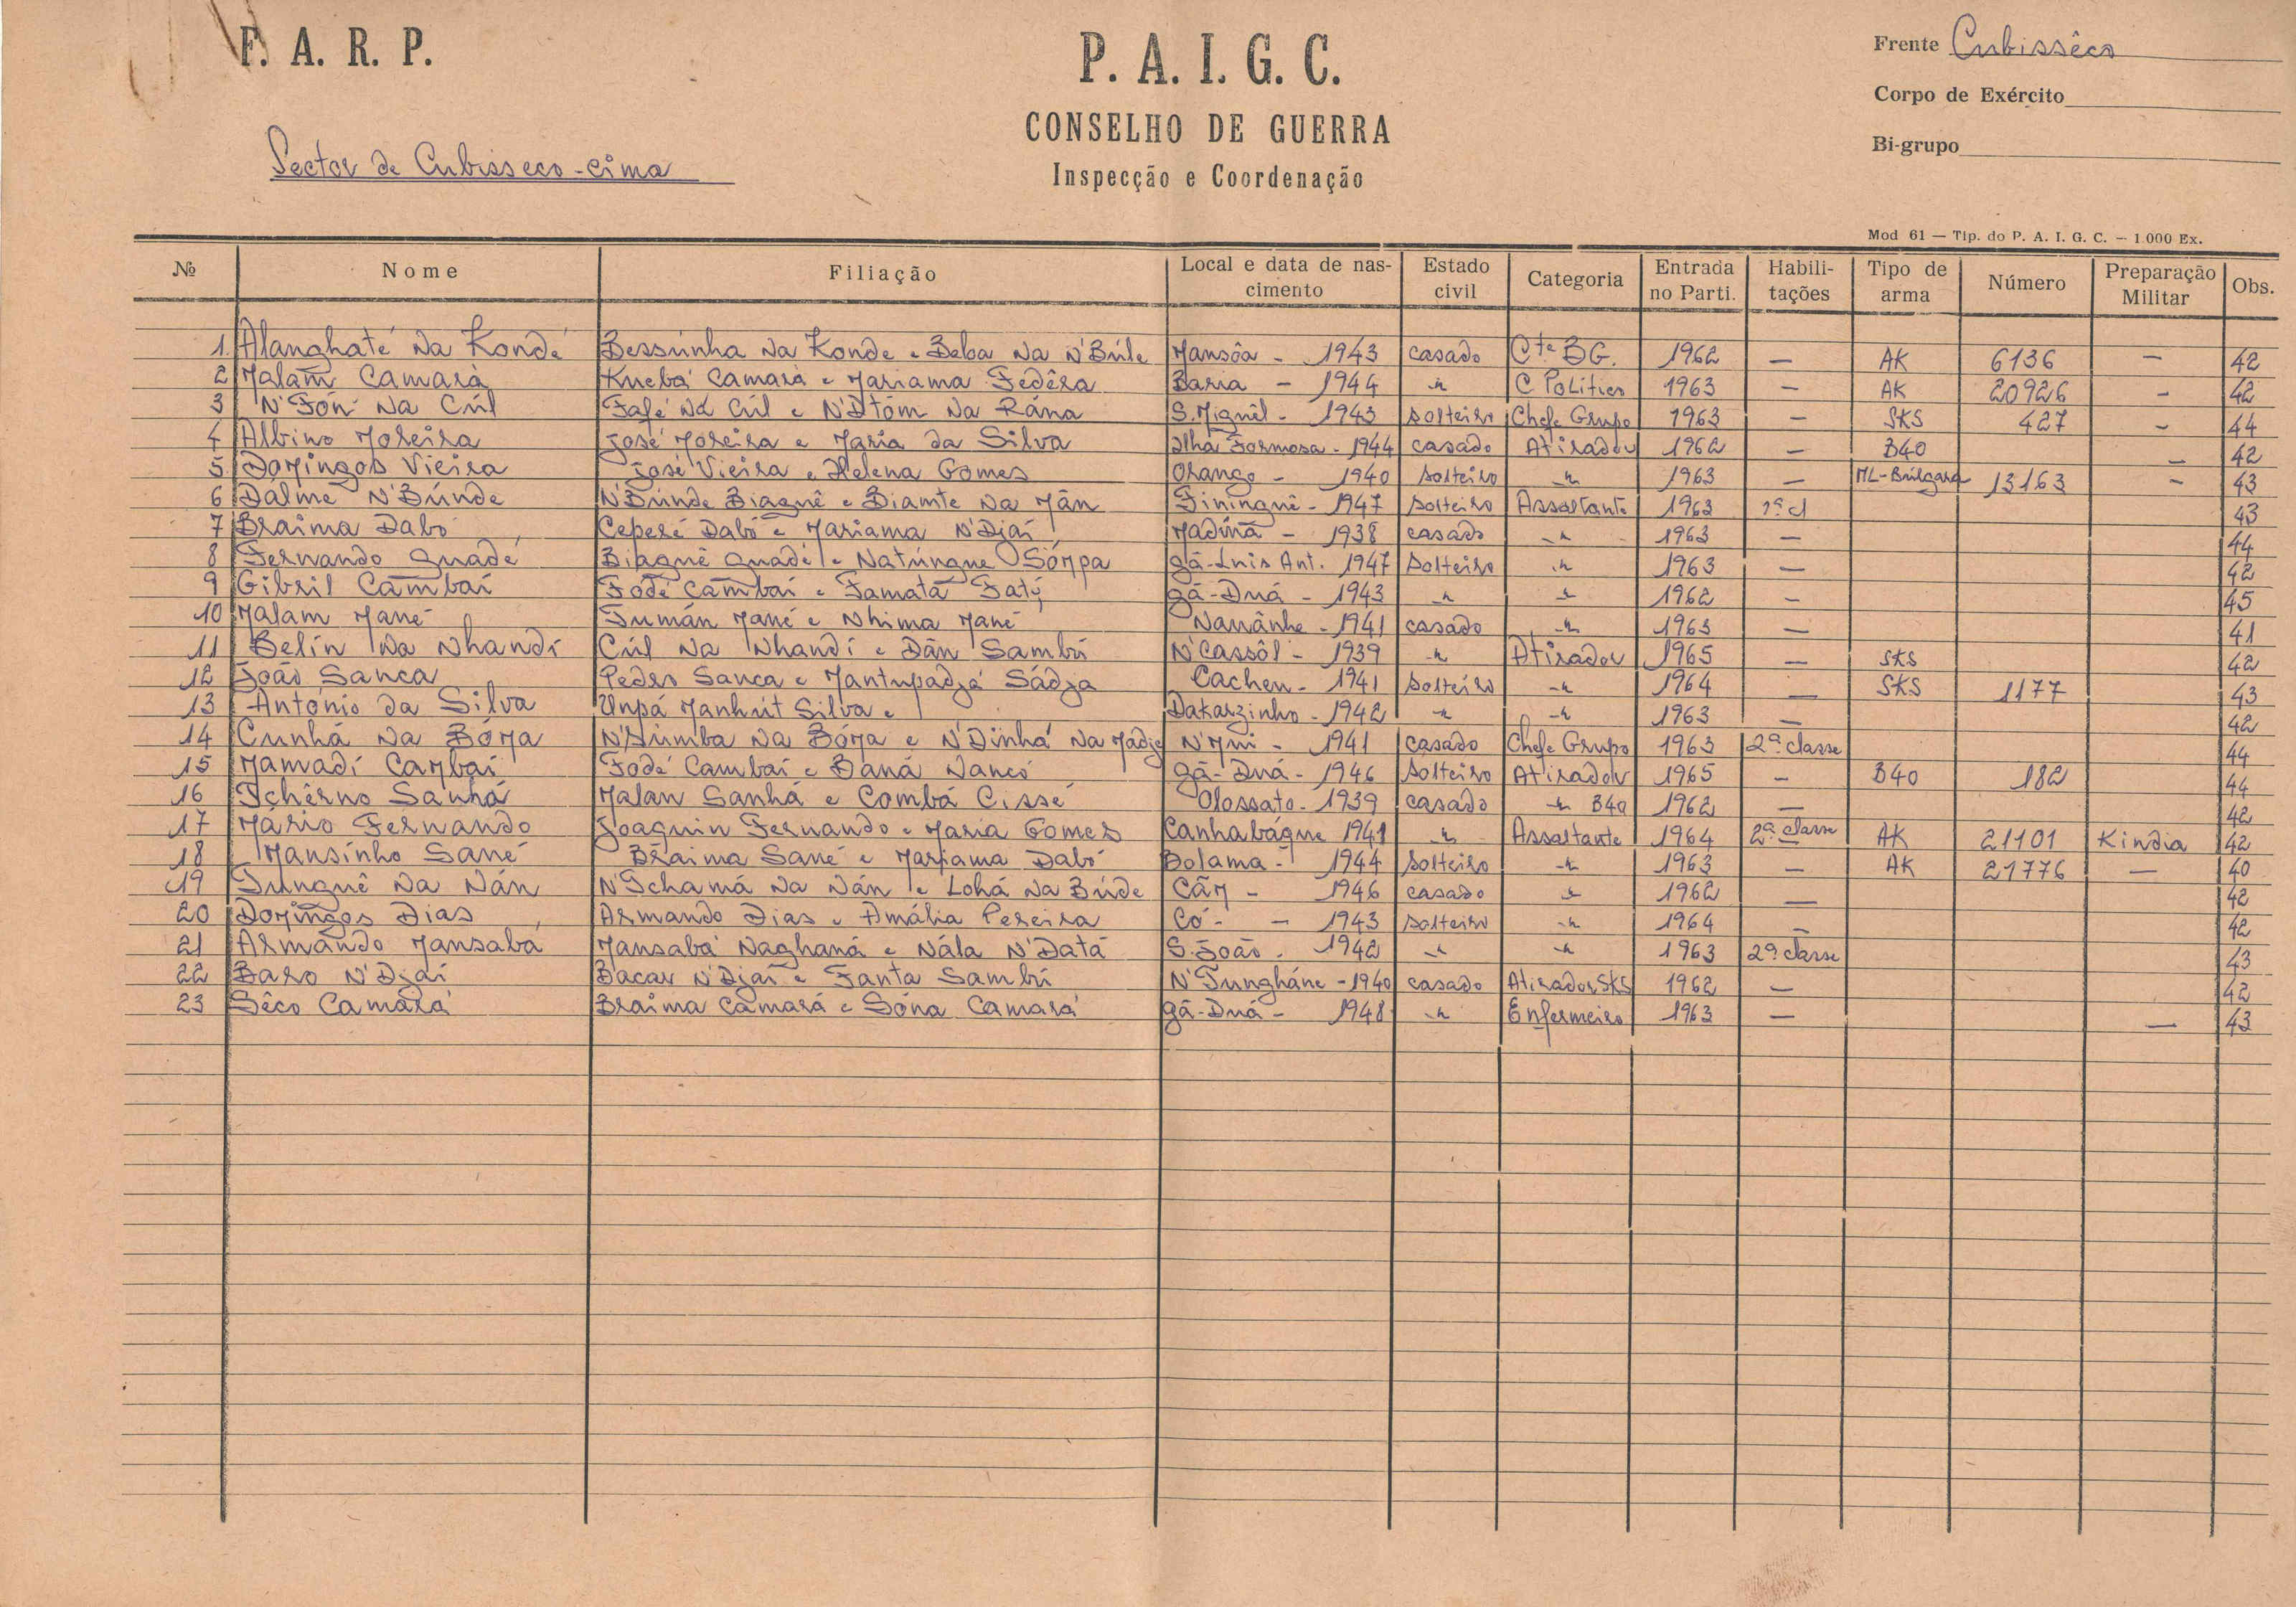 F. A. R. P.
P. A. I. G. C.
CONSELHO DE GUERRA
Inspecção e Coordenação
Frente Cubissêco
Corpo de Exército
Bi-grupo
Sector de Cubisseco-cima
Mod 61 — Tip. do P. A. I. G. C. — 1.000 Ex.
№ Nome Filiação Local e data de nascimento Estado civil Categoria Entrada no Parti. Habilitações Tipo de arma Número Preparação Militar Obs.
1. Alanghaté Na Kondé Bessúnha Na Konde e Beba Na N'Búle Mansôa - 1943 casado Cte BG. 1962 — AK 6136 — 42
2 Malam Camará Kuebá Camará e Mariama Fedêra Baria - 1944 -"- C Politico 1963 — AK 20926 - 42
3 N'Fón Na Cúl Fafé Na Cúl e N'Dtóm Na Rána S. Miguêl - 1943 solteiro Chefe Grupo 1963 — SKS 427 - 44
4 Albino Moreira José Moreira e Maria da Silva Ilha Formosa - 1944 casado Atirador 1962 — B40 — 42
5. Domingos Vieira José Vieira e Helena Gomes Orango - 1940 solteiro -"- 1963 — ML-Búlgara 13163 - 43
6 Dálme N'Búnde N'Búnde Biaguê e Biamte Na Mân Finínguê - 1947 solteiro Assaltante 1963 1ª cl 43
7 Braima Dabó Ceperé Dabó e Mariama N'Djaí Madína - 1938 casado -"- 1963 — 44
8 Fernando Quadé Biaguê Quadé e Natúngue Sómpa Gã-Luis Ant. 1947 Solteiro -"- 1963 — 42
9 Gibril Cambaí Fodé Cambaí e Famatã Faty Gã-Duá - 1943 -"- -"- 1962 — 45
10 Malam Mané Tumán Mané e Nhima Mané Nauânhe - 1941 casado -"- 1963 — 41
11 Belín Na Nhandí Cúl Na Nhandí e Dãn Sambú N'Cassôl - 1939 -"- Atirador 1965 — SKS 42
12 João Sanca Pedro Sanca e Mantupadjá Sádja Cacheu - 1941 solteiro -"- 1964 — SKS 1177 43
13 António da Silva Unpá Manhút Silva e Dakarzinho - 1942 -"- -"- 1963 — 42
14 Cunhá Na Bóma N'Súmba Na Bóma e N'Dinhá Na Mádje N'Mui - 1941 casado Chefe Grupo 1963 2ª classe 44
15 Mamadí Cambaí Fodé Cambaí e Baná Nancó Gã-Duá - 1946 solteiro Atirador 1965 - B40 182 44
16 Tchêrno Sanhá Malan Sanhá e Combá Cissé Olossato - 1939 casado -"- B40 1962 — 42
17 Mário Fernando Joaquin Fernando e Maria Gomes Canhabáque 1941 -"- Assaltante 1964 2ª classe AK 21101 Kindia 42
18 Mansínho Sané Braima Sané e Mariama Dabó Bolama - 1944 solteiro -"- 1963 — AK 21776 — 40
19 Tunguê Na Nán N'Tchamá Na Nán e Lohá Na Búde Cãm - 1946 casado -"- 1962 — 42
20 Domingos Dias Armando Dias e Amália Pereira Có - - 1943 solteiro -"- 1964 — 42
21 Armando Mansabá Mansabá Naghaná e Nála N'Datá S. João - 1942 -"- -"- 1963 2ª classe 43
22 Baro N'Djaí Bacar N'Djaí e Fanta Sambú N'Tungháne - 1940 casado Atirador SKS 1962 — 42
23 Sêco Camará Braima Camará e Sóna Camará Gã-Duá - 1948 -"- Enfermeiro 1963 — — 43